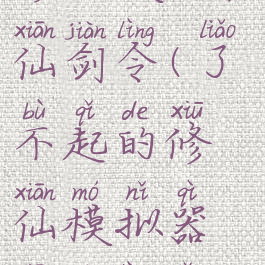 xiān jiàn lìng liǎo
仙剑令(了
bù qǐ de xiū
不起的修
xiān mó nǐ qì
仙模拟器